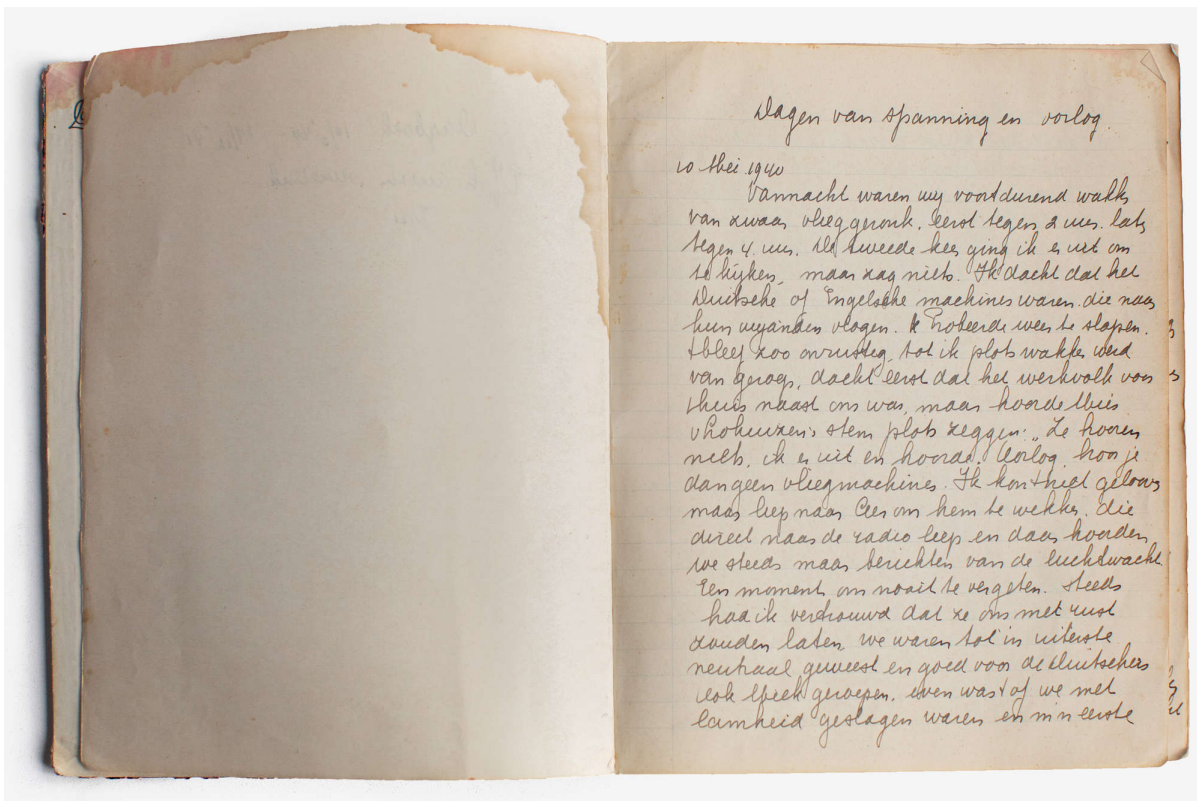 Dagen van spanning en oorlog.
10 Mei 1940
Vannacht waren wij voortdurend wakker
van zwaar vlieggeronk, eerst tegen 2 uur. later
tegen 4. uur. De tweede keer ging ik er uit om
te kijken, maar zag niets. Ik dacht dat het
Duitsche of Engelsche machines waren. die naar
hun vijanden vlogen. Ik Probeerde weer te slapen.
+ bleef zoo onrustig, tot ik plots wakker werd
van geroep, dacht eerst dat het werkvolk voor
thuis naast ons was, maar hoorde Mies
stem plots zeggen: „Ze hooren
niets, ik er uit en hoorde. Oorlog, hoor je
dan geen vliegmachines. Ik kon 't niet gelooven
maar liep naar Cees om hem te wekken. die
direct naar de radio liep en daar hoorden
we steeds maar berichten van de luchtwacht.
Een moment om nooit te vergeten. Steeds
had ik vertrouwd dat ze ons met rust
zouden laten, we waren tot in uiterste
neutraal geweest en goed voor de Duitschers
ook geroepen. even was 't of we met
lamheid geslagen waren en m'n eerste